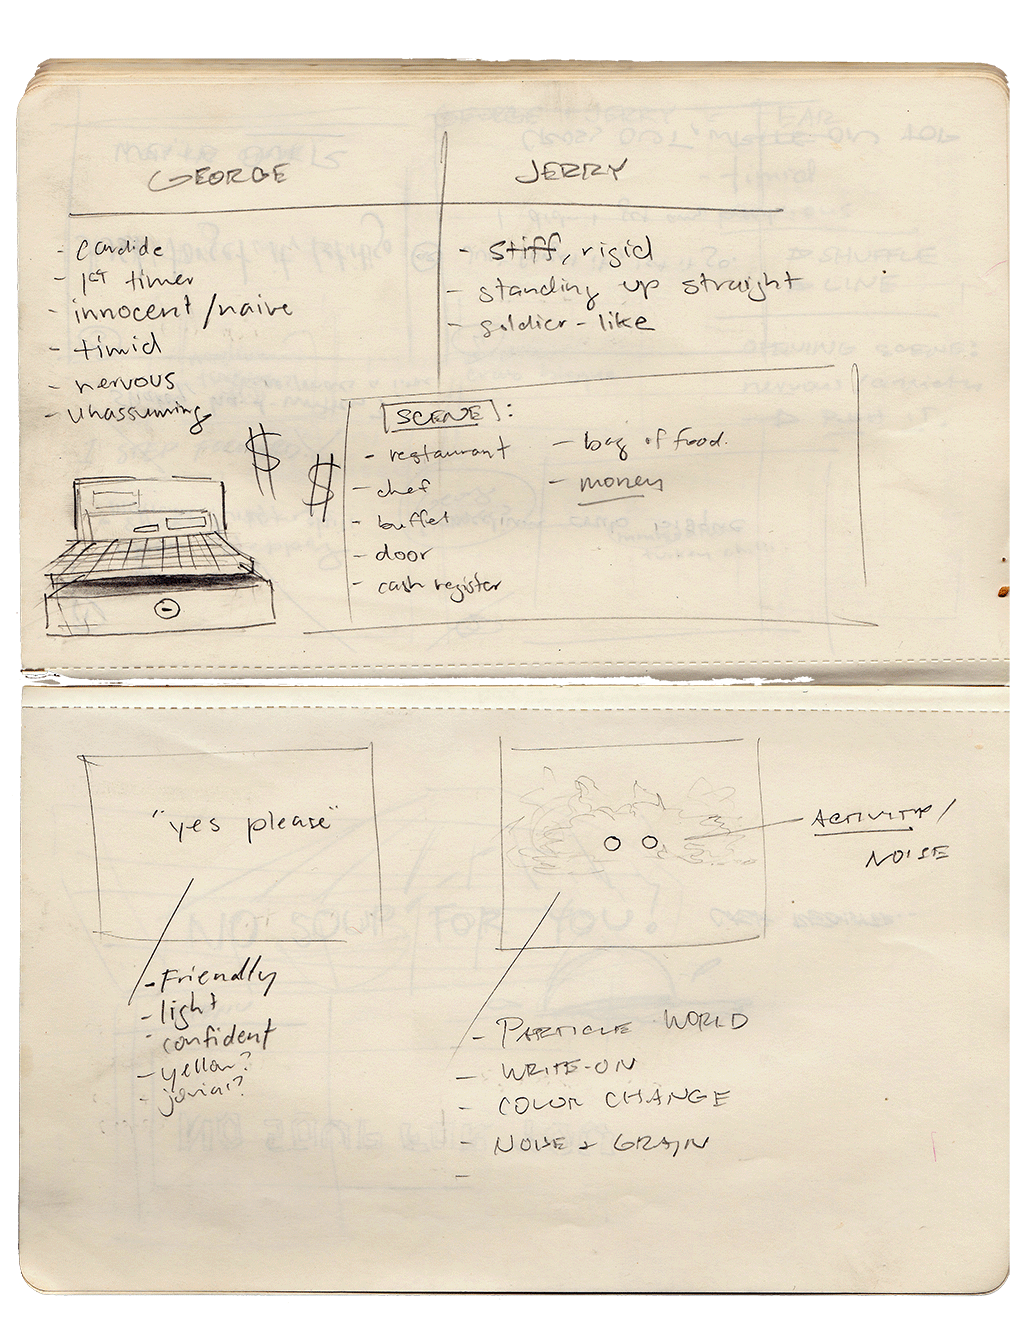 GEORGE
- candide
- 1st timer
- innocent/naive
- timid
- nervous
- unassuming
JERRY
- stiff, rigid
- standing up straight
- soldier-like
$ $
SCENE:
- restaurant
- chef
- buffet
- door
- cash register
- bag of food.
- money
"yes please"
- Friendly
- light
- confident
- yellow?
- jovial?
ACTIVITY/
NOISE
- PARTICLE WORLD
- WRITE-ON
- COLOR CHANGE
- NOISE + GRAIN
-
NO SOUP FOR YOU!